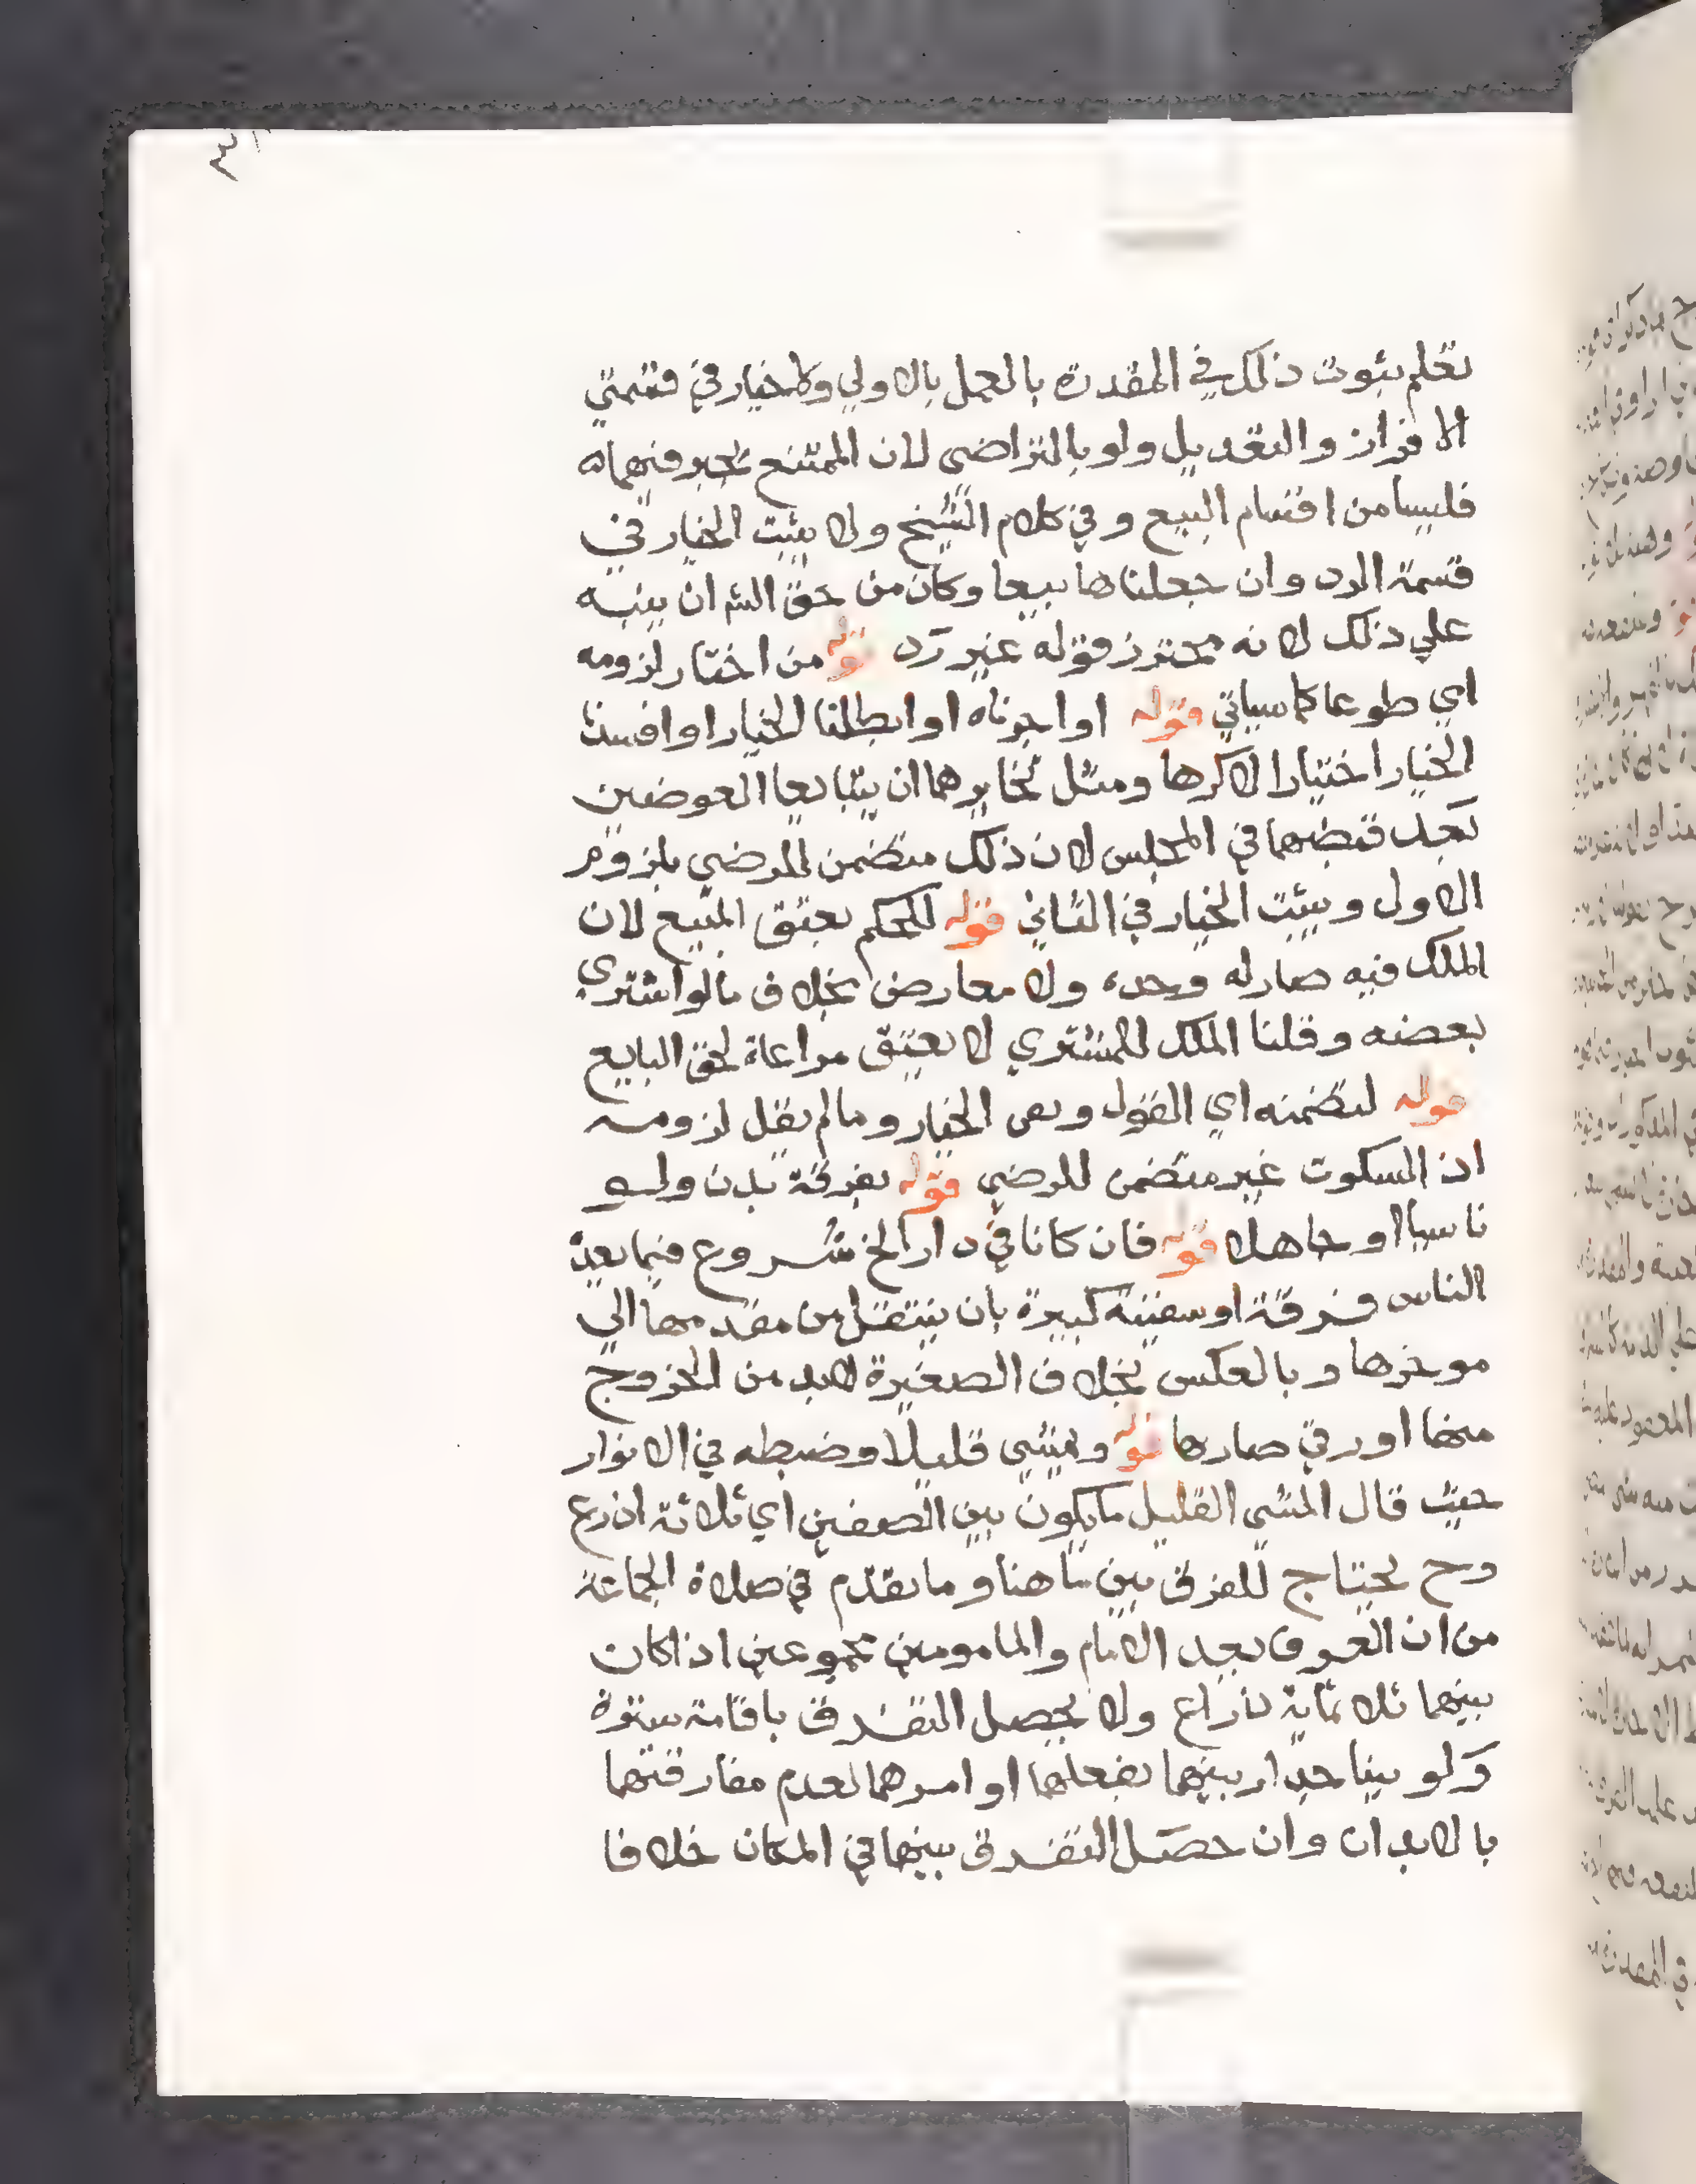 ٣١
تعلم بثبوت ذلك في المقدرة بالعمل بالاولي ولا خيار في قسمتي
الافراز والتعديل ولو بالتراضي لان الممتنع يجبر فيهما اه
فليسا من اقسام البيع وفي كلام الشيخ ولا يثبت الخيار في
قسمة الرد وان جعلناها بيعا وكان من حق الشه ان ينبه
علي ذلك لانه محترز قوله غير رد قوله من اختار لزومه
اي طوعا كما سياتي قوله او اجزناه او ابطلنا الخيار او افسدنا
الخيار اختيارا لا كرها ومثل تخايرهما ان يتبايعا العوضين
بعد قبضهما في المجلس لان ذلك متضمن للرضي بلزوم
الاول ويثبت الخيار في الثاني قوله للحكم بعتق المبيع لان
الملك فيه صار له وحده ولا معارض بخلاف ما لو اشتري
بعضه وقلنا الملك للمشتري لا يعتق مراعاة لحق البايع
قوله لتضمنه اي القول وبقى الخيار وما لم يقل لزومه
اذ السكوت غير متضمن للرضي قوله بفرقة بدن ولو
ناسيا او جاهلا قوله فان كانا في دار الخ شروع فيما يعده
الناس فرقة او سفينة كبيرة بان ينتقل من مقدمها الي
موخرها وبالعكس بخلاف الصغيرة لابد من الخروج
منها او رقي صارها قوله ومشي قليلا وضبطه في الانوار
حيث قال المشي القليل ما يكون بين الصفين اي ثلاثة اذرع
وح يحتاج للفرق بين ما هنا وما تقدم في صلاة الجماعة
من ان العرف يعد الامام والمامومين مجموعين اذا كان
بينهما ثلاثماية ذراع ولا يحصل التفرق باقامة سترة
ولو بينا جدار بينهما بفعلهما او امرهما لعدم مفارقتهما
بالابدان وان حصل التفرق بينهما في المكان خلافا